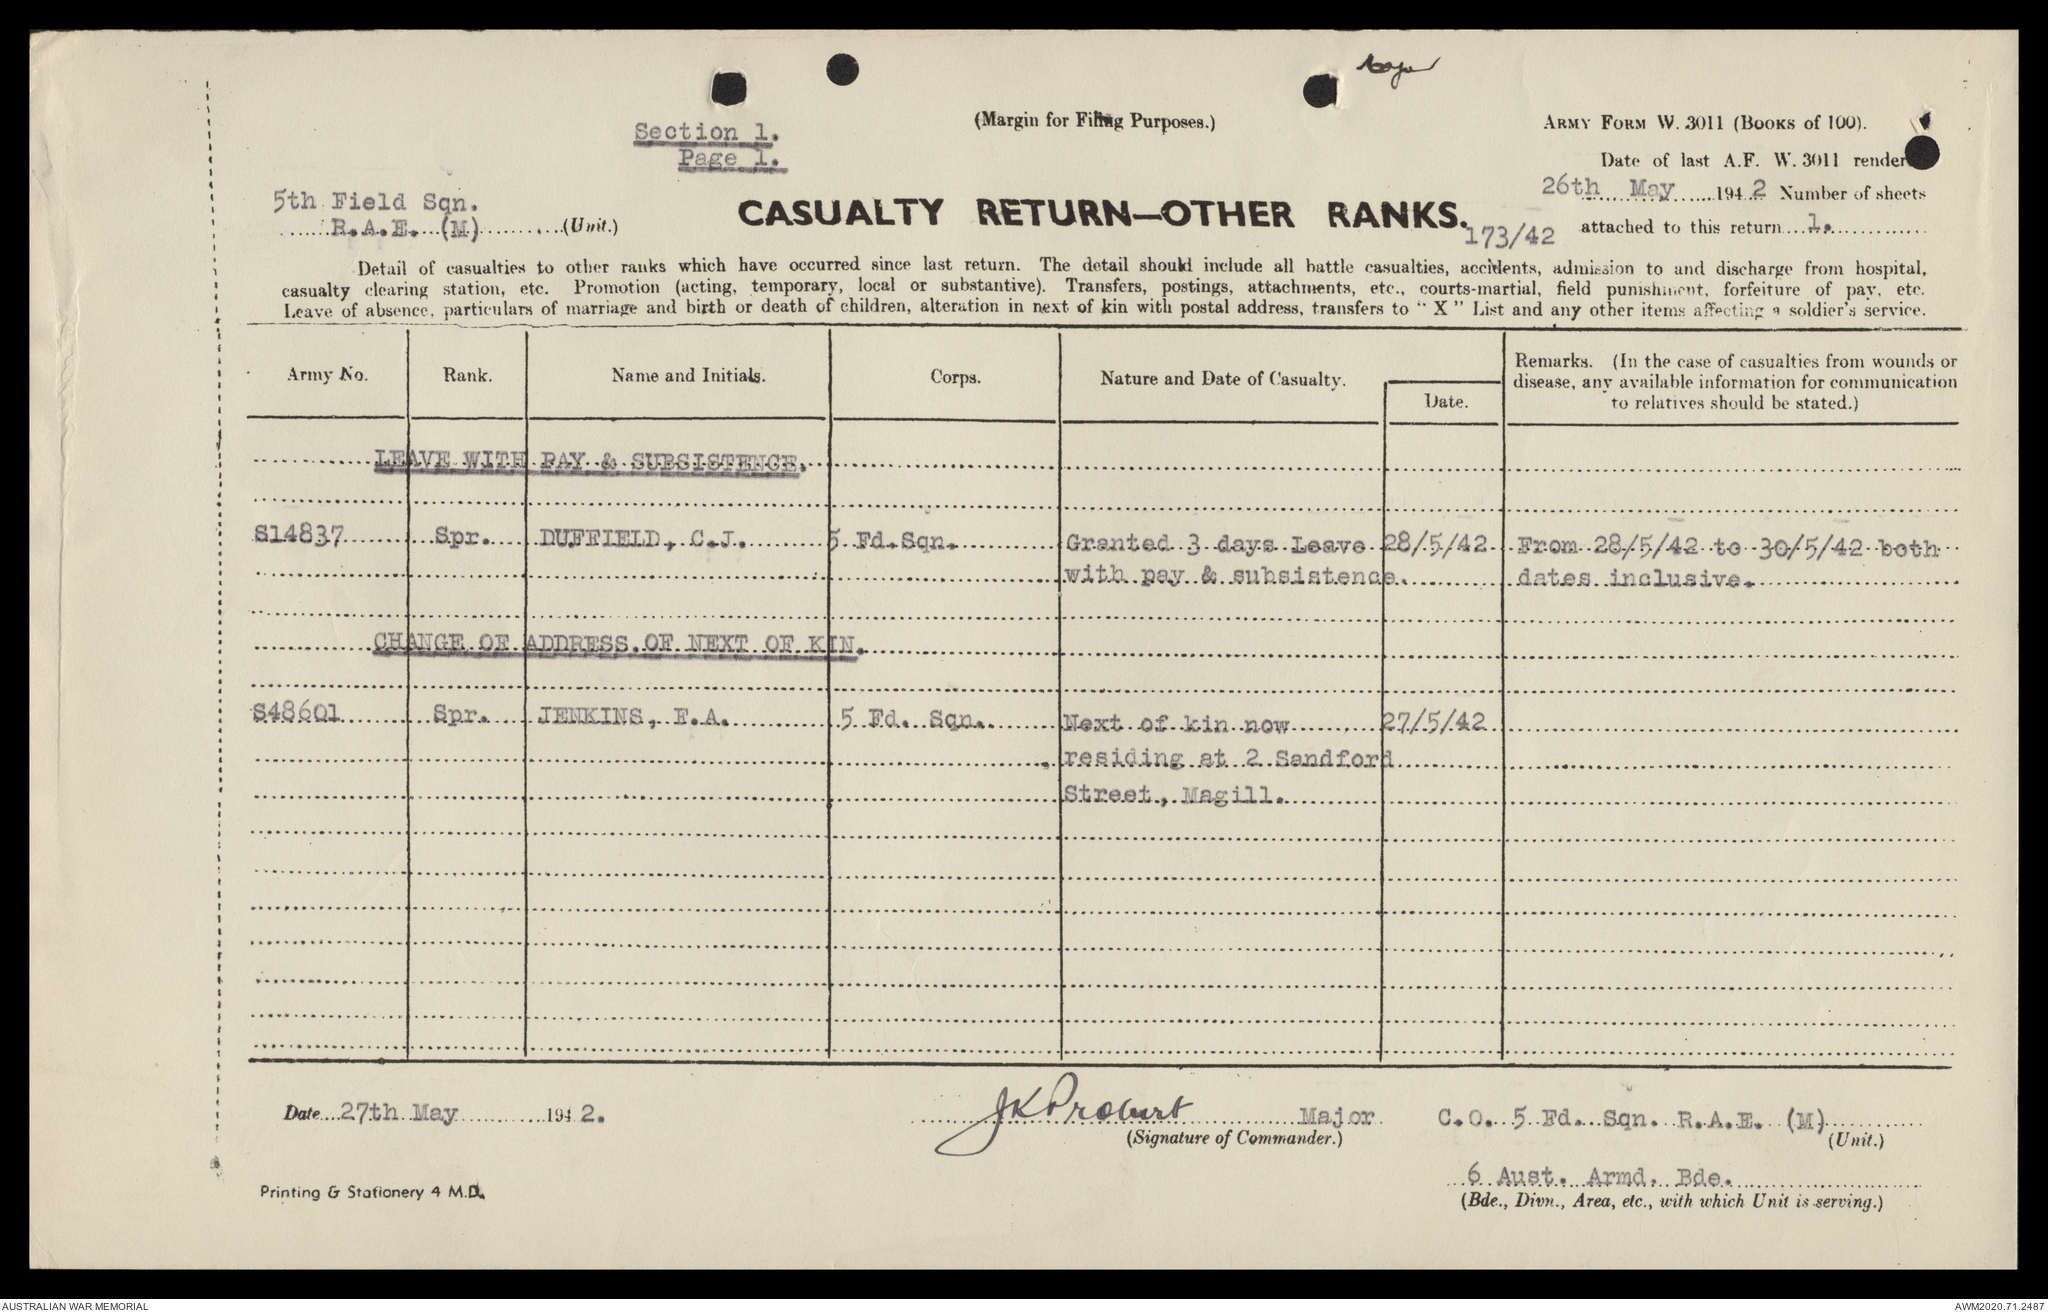 Section 1.
Page 1.
(Margin for Filing Purposes.)
ARMY FORM W. 3011 (BOOKS of 100).
Date of last A.F. W. 3011 render
26th May 1942 Number of sheets
attached to this return 1.
5th Field Sqn.
R.A.E. (M) (Unit.)
CASUALTY RETURN—OTHER RANKS.
173/42
Detail of casualties to other ranks which have occurred since last return. The detail should include all battle casualties, accidents, admission to and discharge from hospital,
casualty clearing station, etc. Promotion (acting, temporary, local or substantive). Transfers, postings, attachments, etc., courts-martial, field punishment, forfeiture of pay, etc.
Leave of absence, particulars of marriage and birth or death of children, alteration in next of kin with postal address, transfers to "X" List and any other items affecting a soldier's service.
Army No. Rank. Name and Initials. Corps. Nature and Date of Casualty. Date.
Remarks. (In the case of casualties from wounds or
disease, any available information for communication
to relatives should be stated.)
LEAVE WITH PAY & SUBSISTENCE.
S14837 Spr. DUFFIELD, C.J. 5 Fd.Sqn. Granted 3 days Leave 28/5/42 From 28/5/42 to 30/5/42 both
with pay & subsistence. dates inclusive.
CHANGE OF ADDRESS OF NEXT OF KIN.
S48601 Spr. JENKINS, F.A. 5 Fd. Sqn. Next of kin now 27/5/42
residing at 2 Sandford
Street, Magill.
Date 27th May 1942. JKProbert Major C.O. 5 Fd. Sqn. R.A.E. (M)
(Signature of Commander.) (Unit.)
6 Aust. Armd. Bde.
(Bde., Divn., Area, etc., with which Unit is serving.)
Printing & Stationery 4 M.D.
AUSTRALIAN WAR MEMORIAL
AWM2020.71.2487